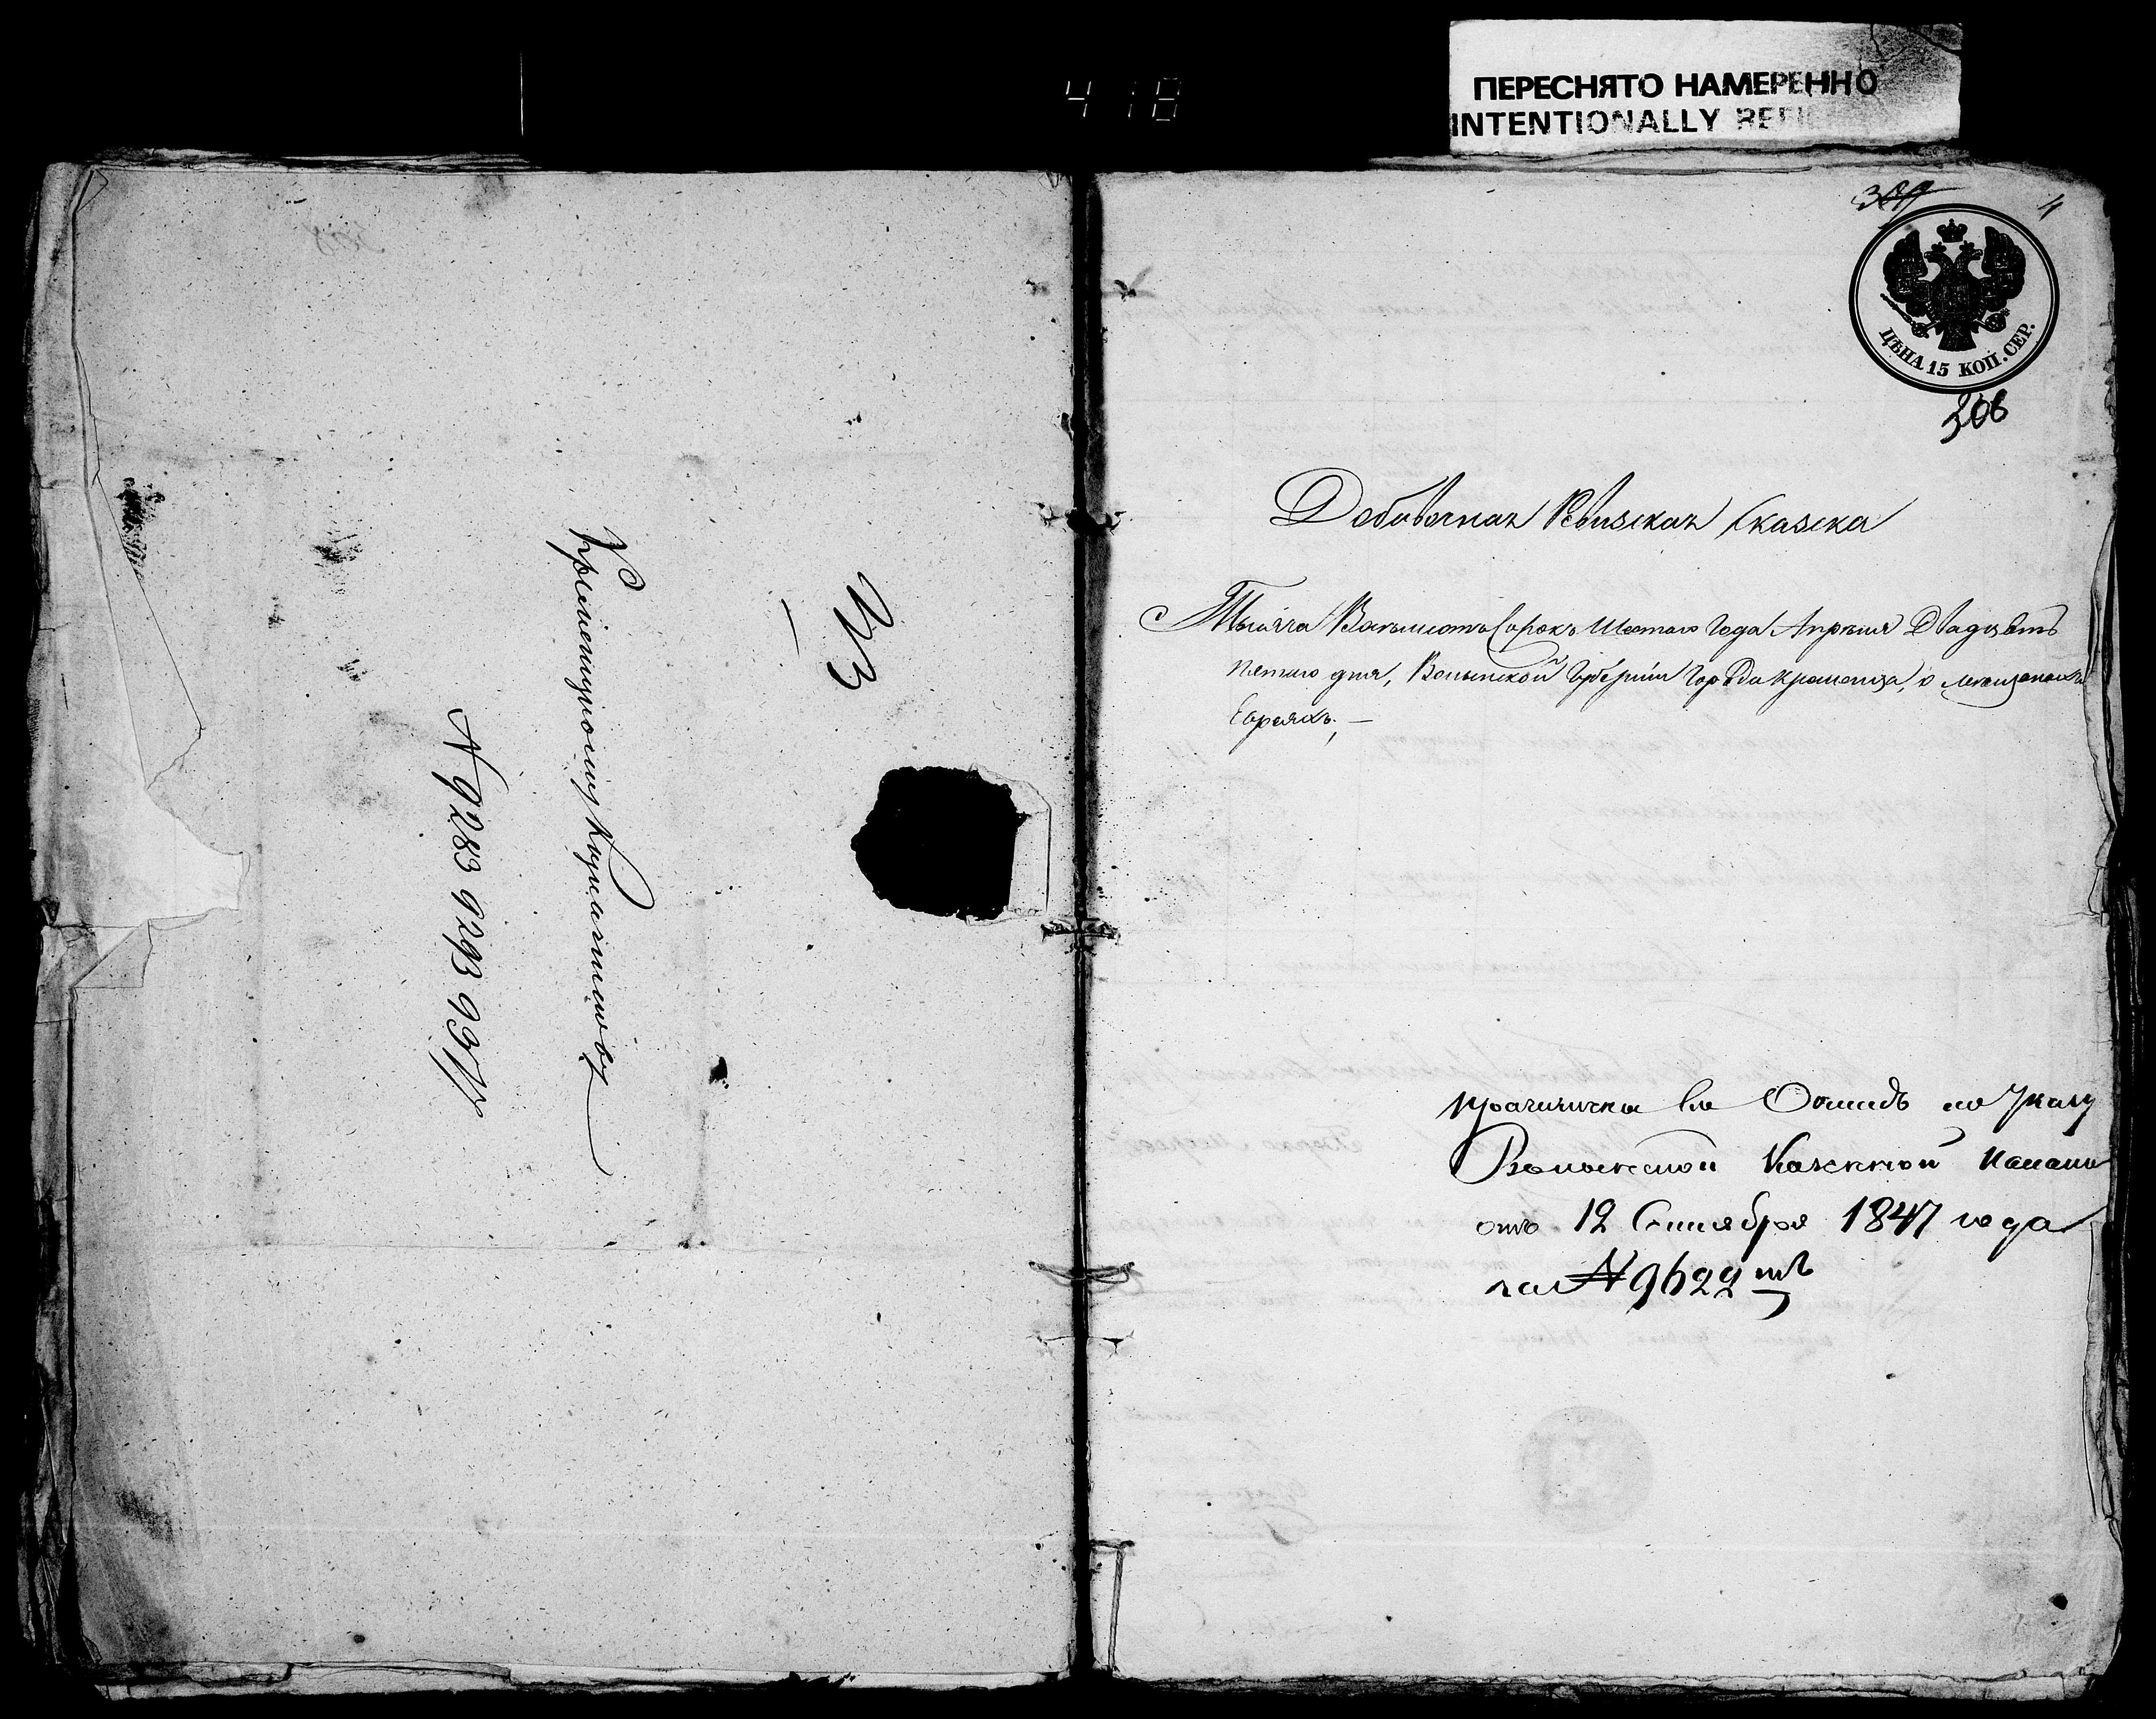 418
ПЕРЕСНЯТО НАМЕРЕННО
INTENTIONALLY REFI
313
Кременецкому Курчатному
№ 9283 9293 9377
4
ЦѢНА 15 КОП. СЕР.
306
Добавочная Ревизская Сказка
Тысяча Восемьсотъ Сорокъ Шестаго Года Апрѣля Двадцать
пятаго дня, Волынской Губерніи Города Кременца, о мѣщанахъ
Евреяхъ;
въ Окладъ по Указу
Волынской Казенной Палаты
отъ 12 Сентября 1847 года
за № 9622